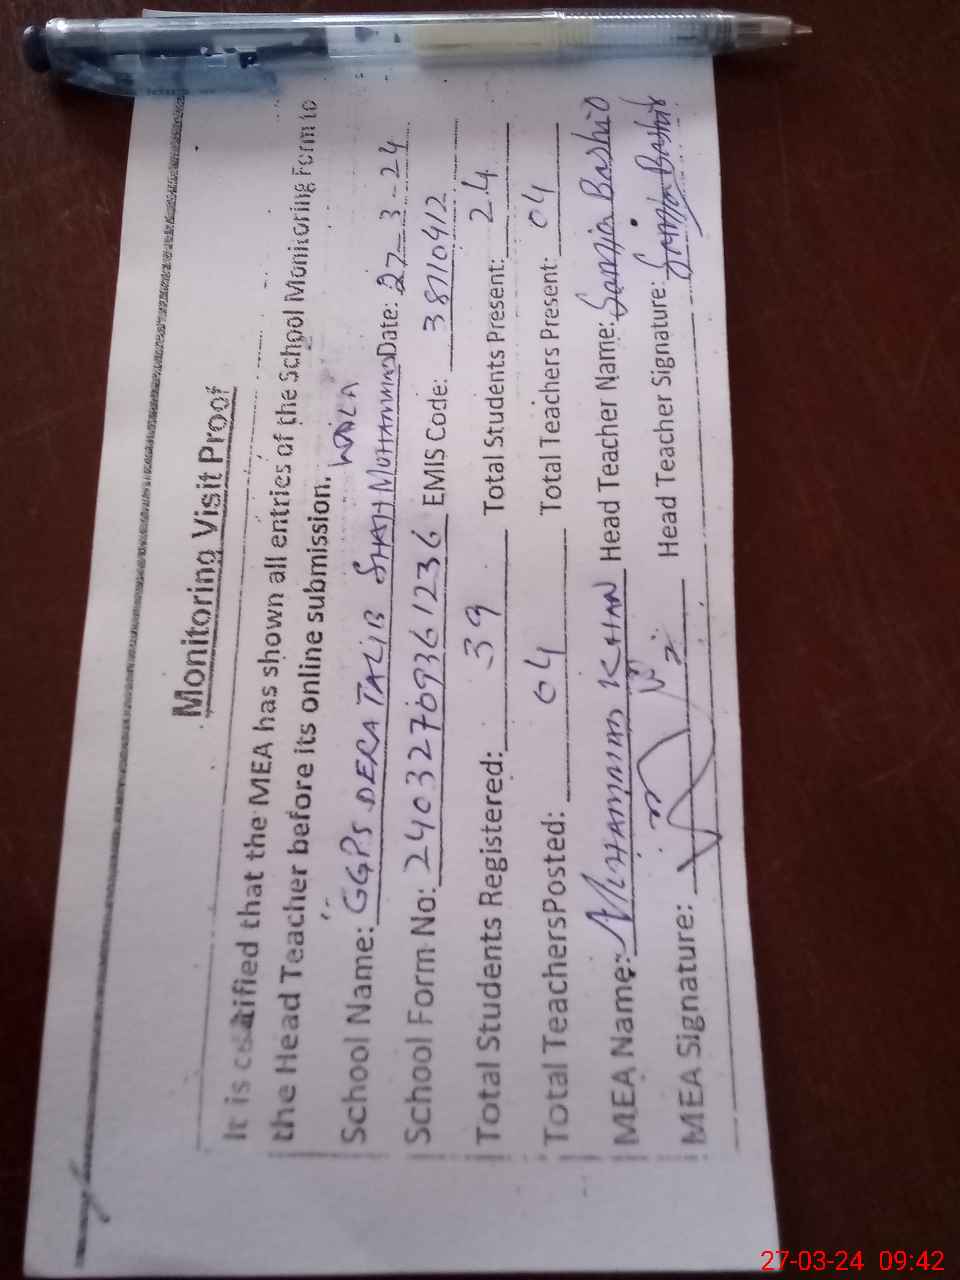 Monitoring Visit Proof
It is certified that the MEA has shown all entries of the School Monitoring Form to
the Head Teacher before its online submission.
WALA
School Name: GGPS DERA TALIB SHAH MUHAMMAD Date: 27-3-24
School Form No: 24032769361236 EMIS Code: 38110412
Total Students Registered: 39 Total Students Present: 24
Total TeachersPosted: 04 Total Teachers Present: 04
MEA Name: MUHAMMAD KHAN Head Teacher Name: Bashir
MEA Signature: Head Teacher Signature: Bashir
27-03-24 09:42